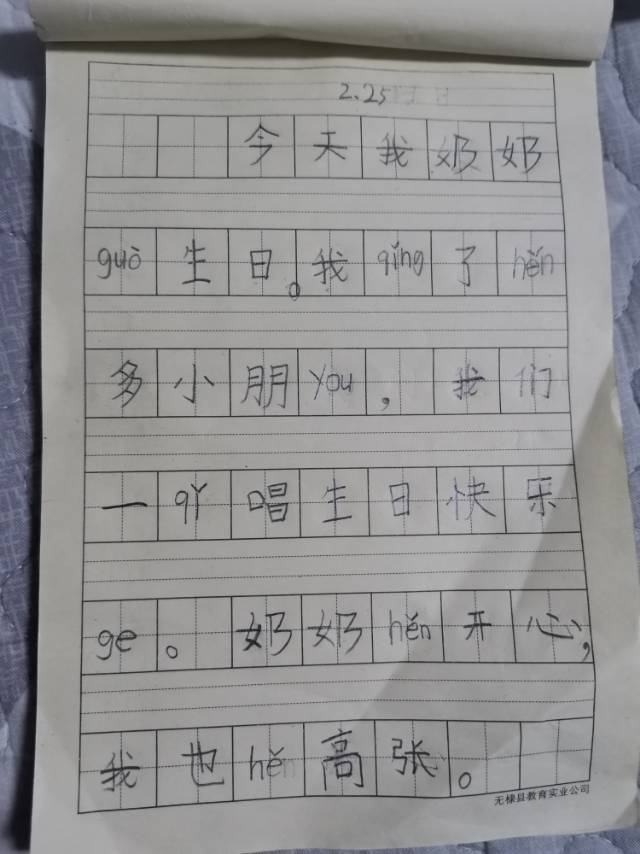 2.25
今天我奶奶
guò生日。我qǐng了hěn
多小朋you，我们
一qǐ唱生日快乐
ge。奶奶hěn开心，
我也hěn高张。
无棣县教育实业公司